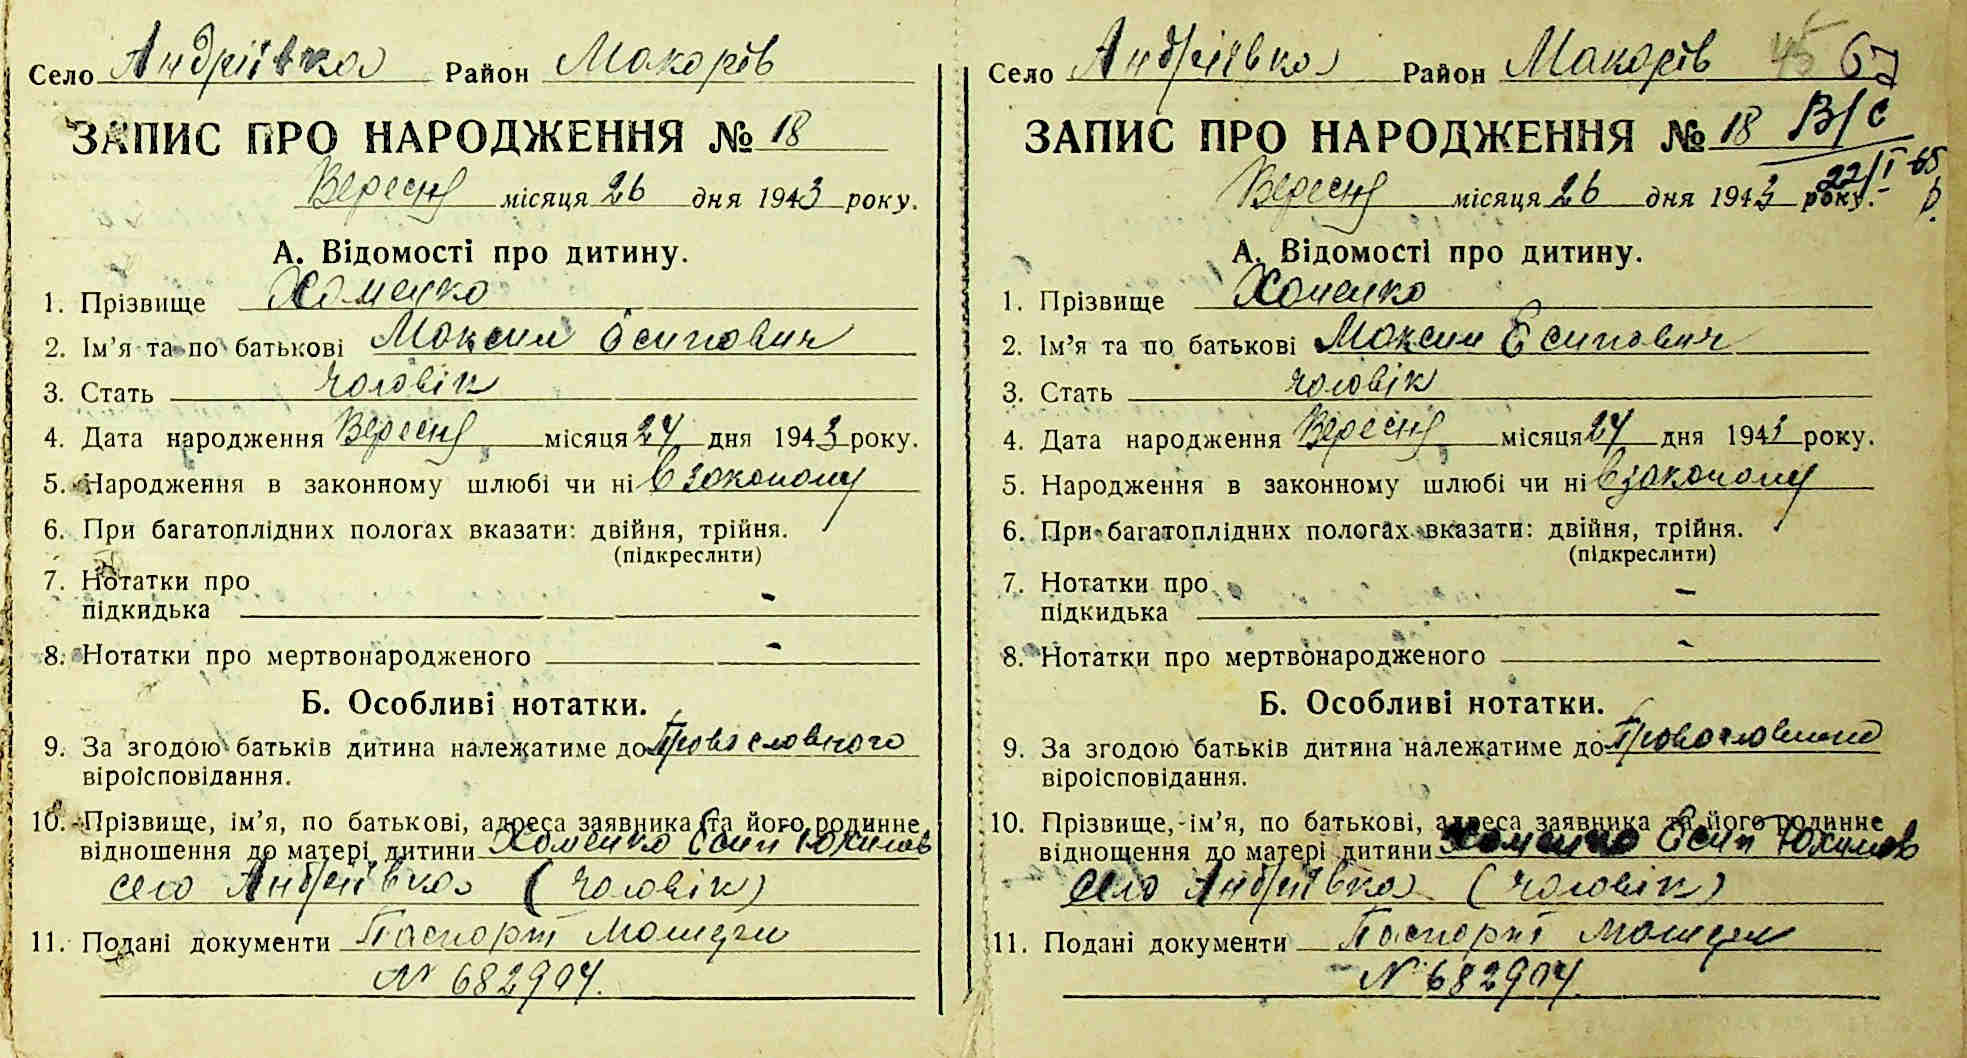 Село Андріївка Район Макарів
ЗАПИС ПРО НАРОДЖЕННЯ № 18
Вересня місяця 26 дня 1943 року.
А. Відомості про дитину.
1. Прізвище Хоменко
2. Ім'я та по батькові Максим Єсипович
3. Стать чоловік
4. Дата народження Вересня місяця 24 дня 1943 року.
5. Народження в законному шлюбі чи ні в законому
6. При багатоплідних пологах вказати: двійня, трійня.
(підкреслити)
7. Нотатки про
підкидька -
8. Нотатки про мертвонародженого -
Б. Особливі нотатки.
9. За згодою батьків дитина належатиме до Православного
віроісповідання.
10. Прізвище, ім'я, по батькові, адреса заявника та його родинне
відношення до матері дитини Хоменко Єсип Юхимов
село Андріївка (чоловік)
11. Подані документи Паспорт
№ 682904.
Село Андріївка Район Макарів 45 67
ЗАПИС ПРО НАРОДЖЕННЯ № 18 В/С
22/I-65
Вересня місяця 26 дня 1943 року.
А. Відомості про дитину.
1. Прізвище Хоменко
2. Ім'я та по батькові Максим Єсипович
3. Стать чоловік
4. Дата народження Вересня місяця 24 дня 1943 року.
5. Народження в законному шлюбі чи ні в законому
6. При багатоплідних пологах вказати: двійня, трійня.
(підкреслити)
7. Нотатки про
підкидька -
8. Нотатки про мертвонародженого -
Б. Особливі нотатки.
9. За згодою батьків дитина належатиме до Православного
віроісповідання.
10. Прізвище, ім'я, по батькові, адреса заявника та його родинне
відношення до матері дитини Хоменко Єсип Юхимов
село Андріївка (чоловік)
11. Подані документи Паспорт
№ 682904